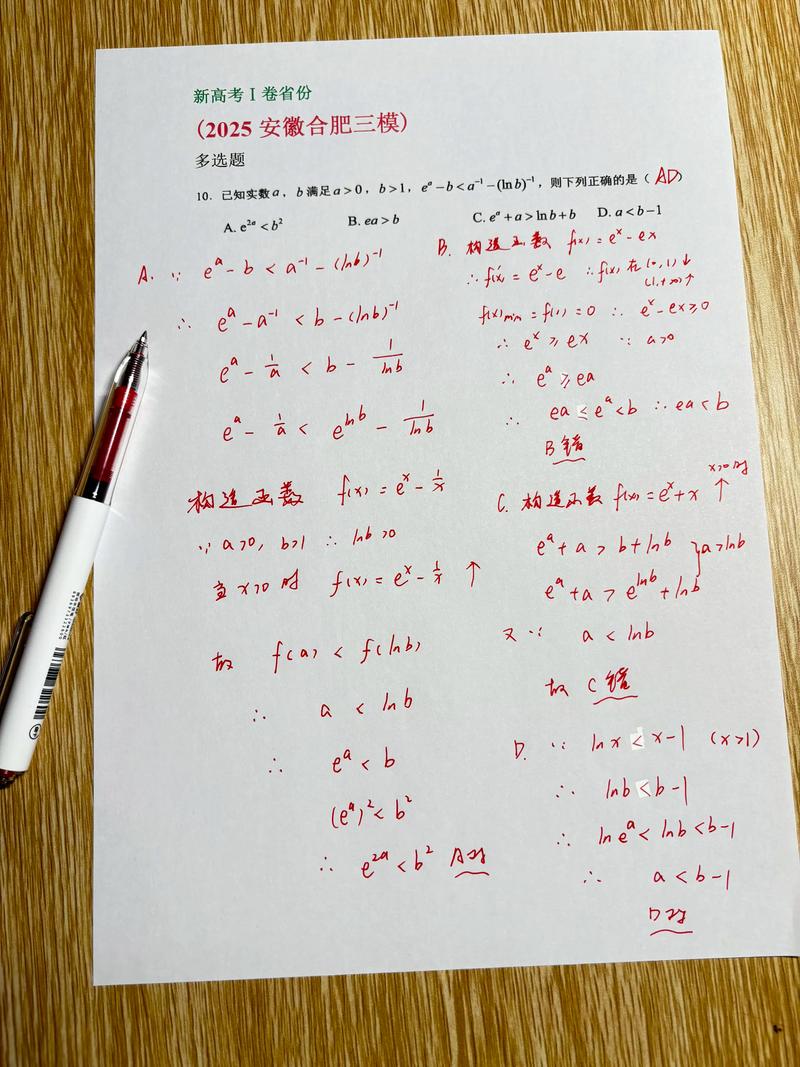 新高考 I 卷省份
(2025 安徽合肥三模)
多选题
10. 已知实数 a，b 满足 a>0，b>1，e^a-b<a^{-1}-(ln b)^{-1}，则下列正确的是（ AD ）
A. e^{2a}<b^2 B. ea>b C. e^a+a>ln b+b D. a<b-1
A. ∵ e^a-b<a^{-1}-(lnb)^{-1}
∴ e^a-a^{-1}<b-(lnb)^{-1}
e^a-1/a<b-1/lnb
e^a-1/a<e^{lnb}-1/lnb
构造函数 f(x)=e^x-1/x
∵ a>0, b>1 ∴ lnb>0
当 x>0 时 f(x)=e^x-1/x ↑
故 f(a)<f(lnb)
∴ a<lnb
∴ e^a<b
(e^a)^2<b^2
∴ e^{2a}<b^2 A对
B. 构造函数 f(x)=e^x-ex
∴ f'(x)=e^x-e ∴ f(x) 在 (0,1)↓
(1,+∞)↑
f(x)min=f(1)=0 ∴ e^x-ex≥0
∴ e^x≥ex ∵ a>0
∴ e^a≥ea
∴ ea≤e^a<b ∴ ea<b
B错
C. 构造函数 f(x)=e^x+x ↑ x>0时
e^a+a>b+lnb } a>lnb
e^a+a>e^{lnb}+lnb
又∵ a<lnb
故 C错
D. ∵ lnx<x-1 (x>1)
∴ lnb<b-1
∴ lne^a<lnb<b-1
∴ a<b-1
D对